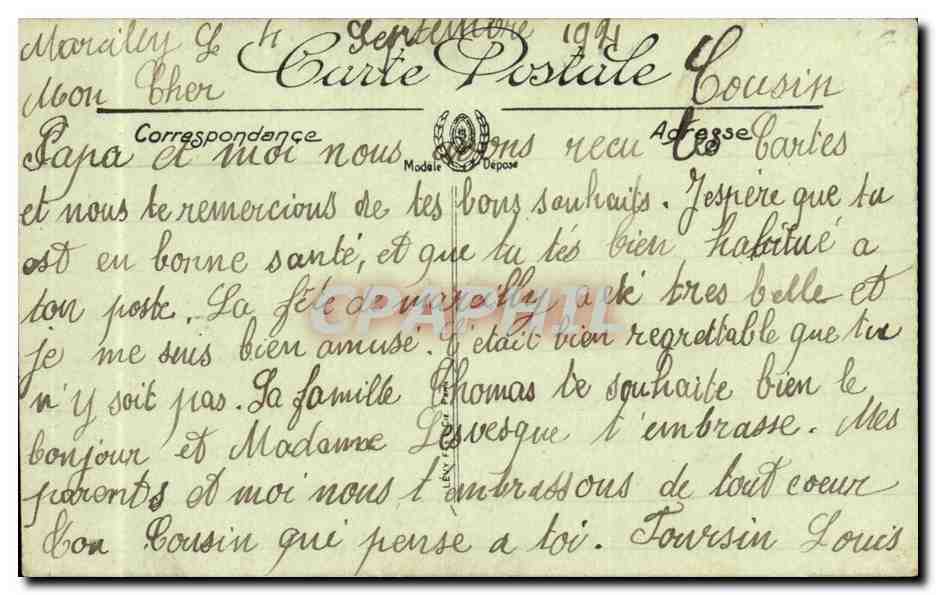 Marcilly Le 4 Septembre 1921
Carte Postale
Mon Cher Cousin
Correspondance Adresse
Papa et moi nous avons recu tes Cartes
Modèle Déposé
et nous te remercions de tes bons souhaits. J'espère que tu
est en bonne santé, et que tu tés bien habitué a
ton poste. La fête de marcilly a eté tres belle et
CPAPHIL
je me suis bien amusé. C'était bien regrettable que tu
n'y soit pas. La famille Thomas te souhaite bien le
bonjour et Madame Lesvesque t'embrasse. Mes
parents et moi nous t'embrassons de tout coeur
Ton Cousin qui pense a toi. Toursin Louis
LÉVY